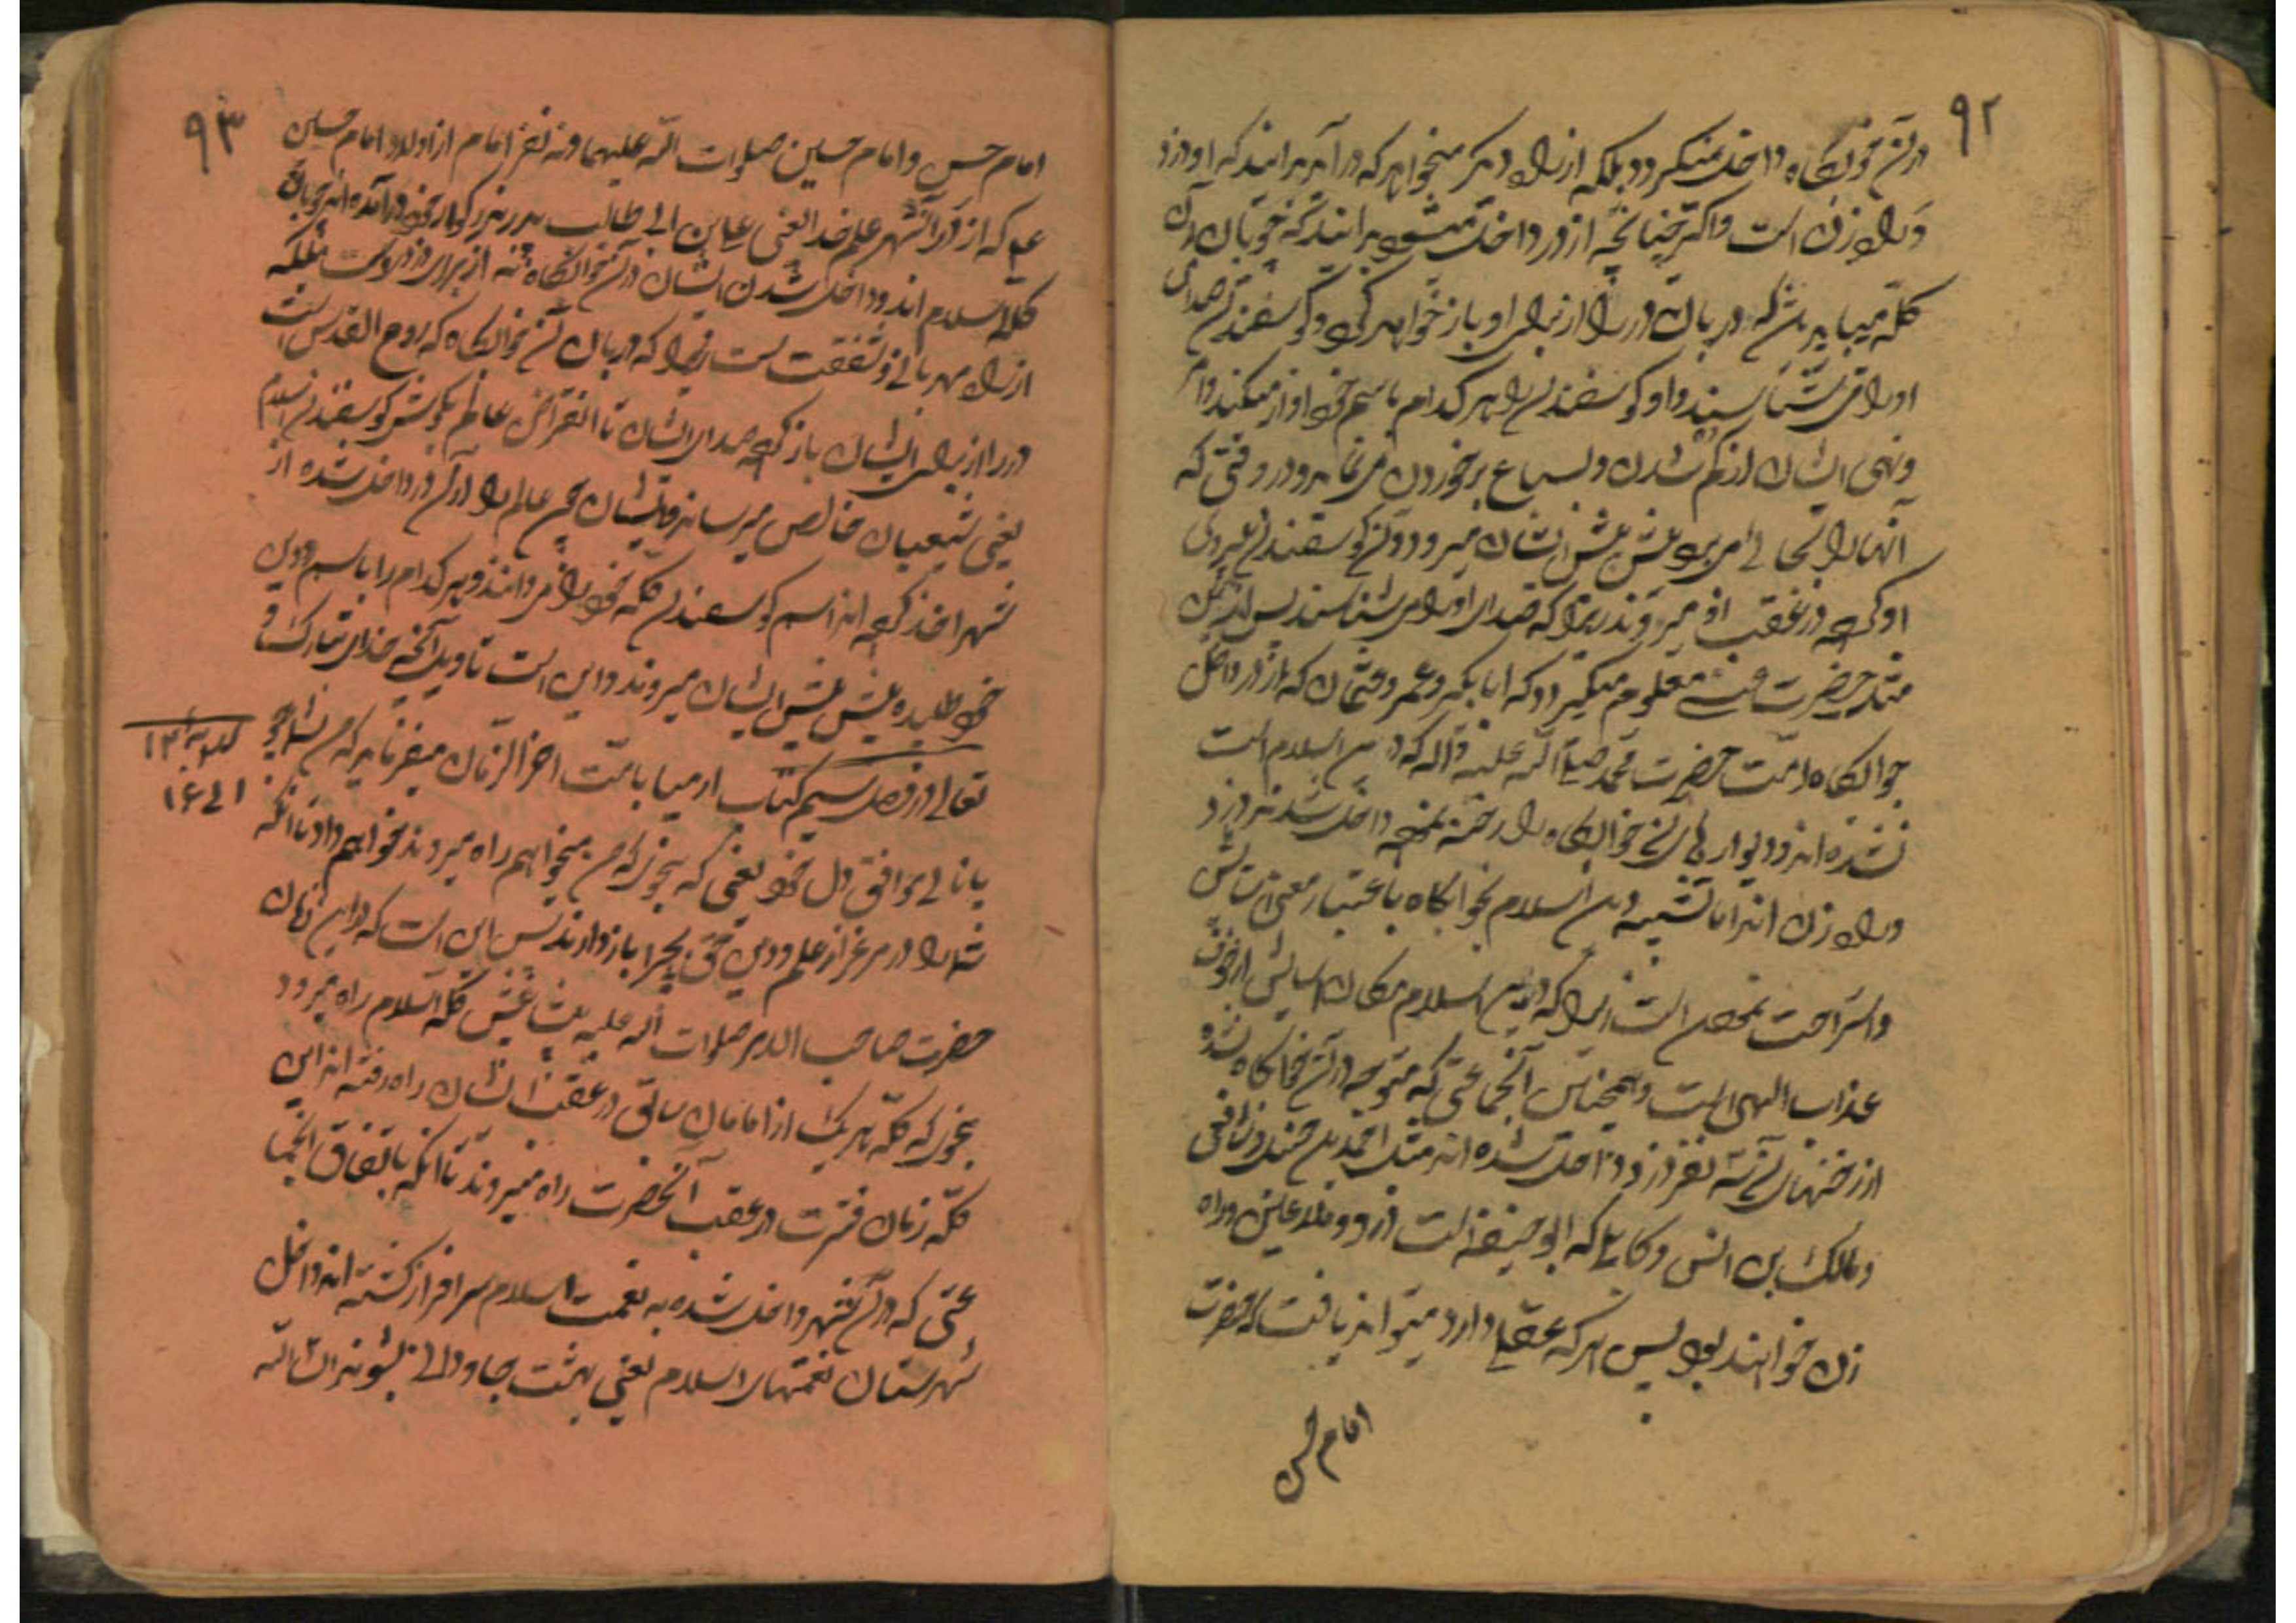 ۹۲
در آن خوابگاه داخل نمیگردد بلکه از راه دیگر میخواهد که در آید بدانید که او دزد
و راه زن است و اگر چنانچه از در داخل میشود بدانید که چوپان آن
گله میباشد که دربان در را از برای او باز خواهد کرد و گوسفندان صدای
او را می شناسند و او گوسفندان را هر کدام باسم خود آواز میکند و امر
و نهی ایشان از گم شدن و بسباع برخوردن می نماید و در وقتی که
آنها را بجائی می برد پیش پیش ایشان میرود و آن گوسفندان پیروی
او کرده در عقب او میروند زیرا که صدای او را می شناسند پس از این
مثل حضرت معلوم میگردد که ابابکر و عمر و عثمان که از در داخل
خوابگاه امت حضرت محمد صلی الله علیه وآله که دین اسلام است
نشده اند و دیوارهای آن خوابگاه را رخنه نموده داخل شدند دزد
و راه زن اند اما تشبیه دین اسلام بخوابگاه باعتبار معنی آسایش
و استراحت بمحض است زیرا که دین اسلام مکان آسایش از خوف
عذاب الهی است و همچنین آنجماعتی که متوجه در آن خوابگاه نشده
از رخنهای آن سه نفر دزد داخل شده اند مثل احمد بن حنبل و شافعی
و مالک بن انس و که ابو حنیفه است دزد و ملاعین و راه
زن خواهند بود پس هر که عقلی دارد میتواند یافت که حضرت
امام حسن
۹۳
امام حسن و امام حسین صلوات الله علیهما و نه نفر امام از اولاد امام حسین
علی که از در آن شهر علم خدا یعنی علی بن ابی طالب پدر بزرگوار خود در آمده اند چوپان
گله اسلام اند و داخل شدن ایشان در آن خوابگاه نه از برای دزدی است بلکه
از راه مهربانی و شفقت است زیرا که دربان آن خوابگاه که روح القدس است
در را از برای ایشان باز کرده صدای ایشان تا انقراض عالم بگوش گوسفندان اسلام
یعنی شیعیان خالص میرساند و ایشان چون علم را از آن در داخل شده از
شهر اخذ کرده اند اسم گوسفندان گله خود را می دانند و هر کدام را باسم و دین
خود طلبیده پیش پیش ایشان میروند و این است تاویل آنچه خدای تبارک و
تعالی در فصل سیم کتاب ارمیا بامت آخر الزمان میفرماید که من شما را چو
آیه ۱۴
الی ۱۶
پانانی موافق دل خود یعنی که بنحوی که من میخواهم راه میروند خواهم داد تا آنکه
شما را در مرغزار علم و دین حق بچرا باز دارند پس این است که در این زمان
حضرت صاحب الامر صلوات الله علیه پیش پیش گله اسلام راه میرود
بنحوی که گله هر یک از امامان سابق در عقب ایشان راه رفته اند این
گله زمان فترت در عقب آنحضرت راه میروند تا آنکه باتفاق آنجما
عتی که در آن شهر داخل شده به نعمت اسلام سرافراز گشته اند داخل
شهرستان نعمتهای اسلام یعنی بهشت جاودانی بشوند انشاالله